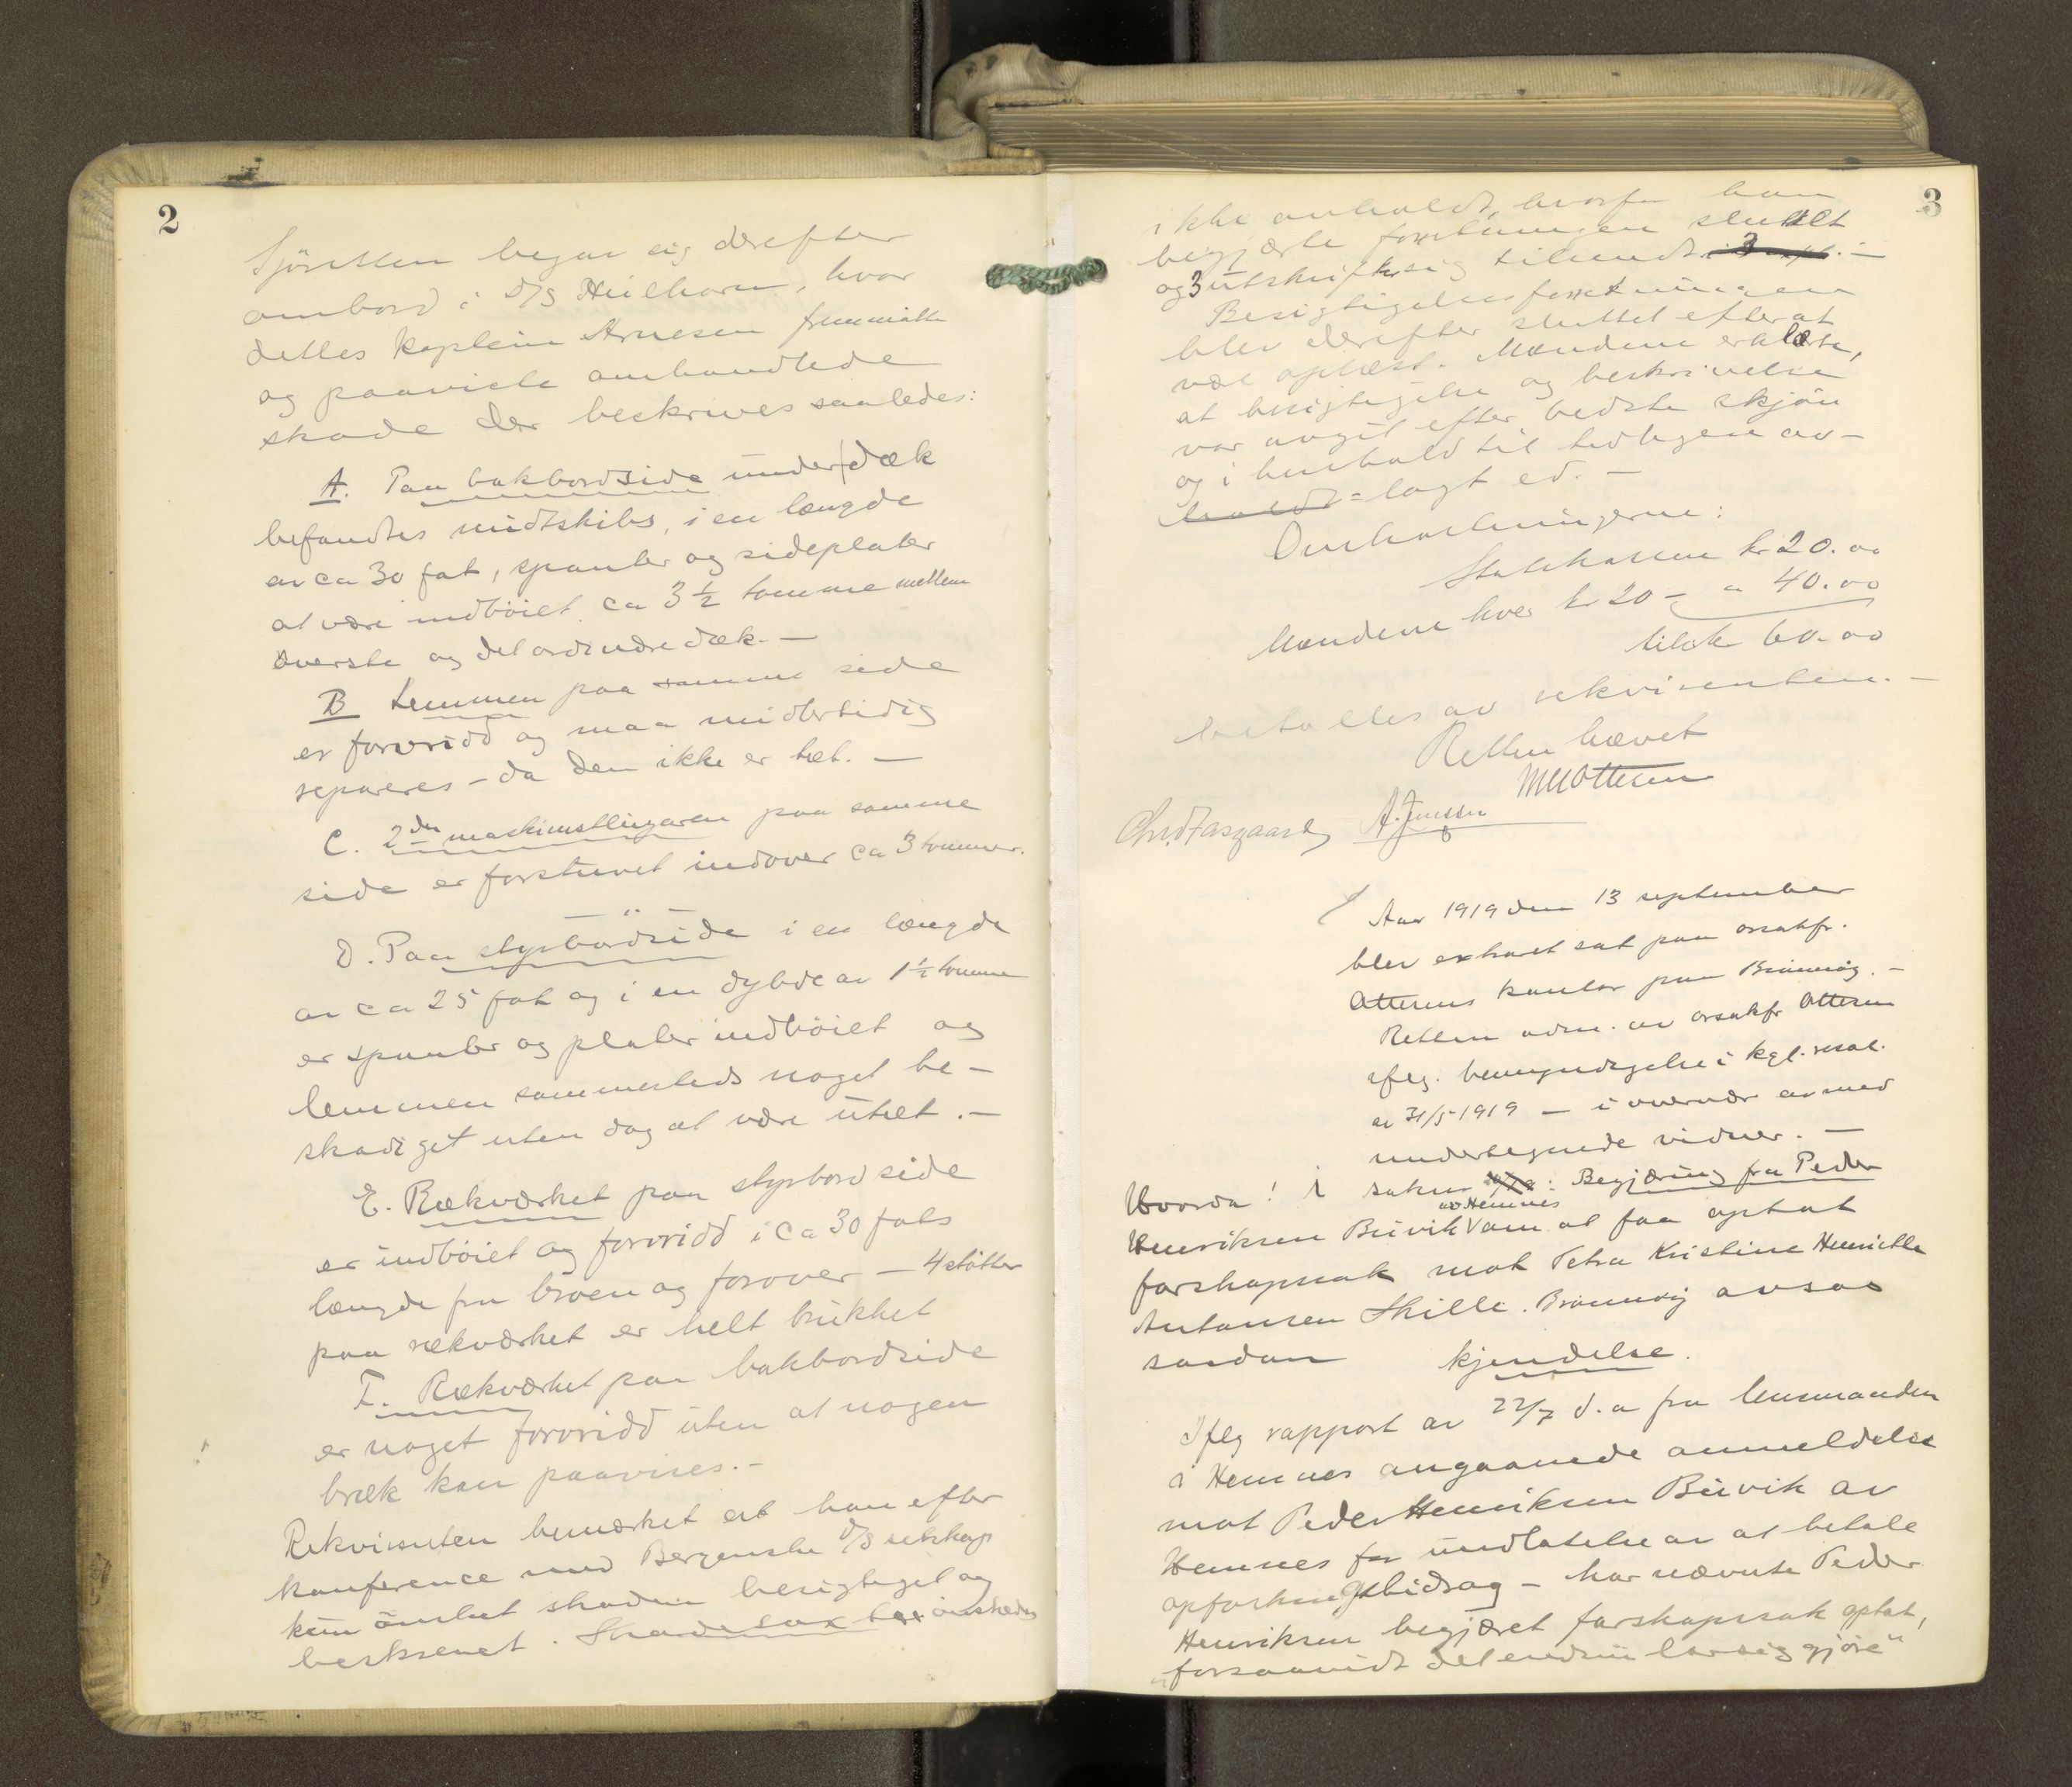 2
Sjöretten begav sig derefter
ombord i D/S Heilhorn, hvor
dettes kaptein Arnesen fremmötte
og paaviste omhandlede
skade der beskrives saaledes:
A. Paa bakbordside under dæk
befandtes midtskibs, i en længde
av ca 30 fot, spanter og sideplater
at være indböiet ca 3 1/2 tomme mellem
överste og det ordinære dæk. –
B Lemmen paa samme side
er forvridd og maa midlertidig
repareres – da den ikke er tæt. –
C. 2den maskinstlingeren paa samme
side er forstuvet indover ca 3 tommer.
D. Paa styrbordside i en længde
av ca 25 fot og i en dybde av 1 1/2 tomme
er spanter og plater indböiet og
lemmen sammesteds noget be-
skadiget uten dog at være utæt. –
E. Rækværket paa styrbord side
er indböiet og forvridd i ca 30 fots
længde fra broen og forover – 4 stötter
paa rækværket er helt brukket
F. Rækværket paa bakbordside
er noget forvridd uten at nogen
bræk kan paavises. –
Rekvirenten bemærket at han efter
konference med Bergenske D/S selskap
kun önsket skaden besigtiget og
beskrevet. Skadetaxt önskedes
3
ikke avholdt, hvorfor han
begjærte forretningen sluttet
og 3 utskrifter sig tilsendt i 3 expl. –
Besigtigelsesforretningen
blev derefter sluttet efter at
være oplæst. Mændene erklærte,
at besigtigelse og beskrivelse
var avgit efter bedste skjön
og i henhold til tidligere av-
holdt = lagt ed. –
Omkostningerne:
Statskassen kr 20.00
Mændene hver kr 20 – " 40.00
tilsk 60.00
betaltes av rekvirenten. –
Retten hævet
MM Ottesen
Chr. Fasgaard A. Jenssen
Aar 1919 den 13 september
blev extraret sat paa orsakfr.
Ottesens kontor paa Brönnöy. –
Retten adm. av orsakfr Ottesen
ifølg. bemyndigelse i kgl. resol.
av 31/5 1919 – i overvær av med
undertegnede vidner. –
Hvorda! I saken : Begjæring fra Peder
av Hemnes
Henriksen Buvik om at faa optat
farskapssak mot Petra Kristine Henriette
Antonsen Skille. Brönnöy avsas
saadan kjendelse.
Ifølg rapport av 22/7 d.a fra lensmanden
i Hemnes angaaende anmeldelse
mot Peder Henriksen Buvik av
Hemnes for undlatelse av at betale
opfostringsbidrag – har nævnte Peder
Henriksen begjæret farskapssak optat,
"forsaavidt det endnu lar sig gjöre"